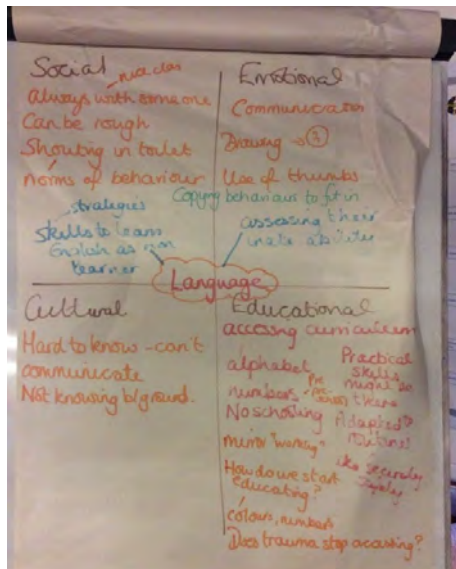 Social
Always with someone
Can be rough
Shouting in toilet
norms of behaviour
strategies
skills to learn
English as non
learner
Emotional
Communication
Drawing →
Use of thumbs
Copying behaviour to fit in
assessing their
inate abilities
Language
Cultural
Hard to know - can't
communicate
Not knowing b/ground.
Educational
accessing curriculum
alphabet
numbers
No schooling
mirror "working"
How do we start
educating?
colours, numbers
Does trauma stop accessing?
Practical
skills
might be
there
Adapted to
routines
like security
safety